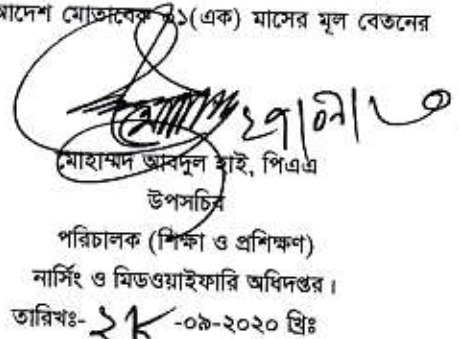 আদেশ মোতাবেক ০১(এক) মাসের মূল বেতনের
মোহাম্মদ আবদুল হাই, পিএএ
উপসচিব
পরিচালক (শিক্ষা ও প্রশিক্ষণ)
নার্সিং ও মিডওয়াইফারি অধিদপ্তর।
তারিখঃ- ২৮ -০৯-২০২০ খ্রিঃ